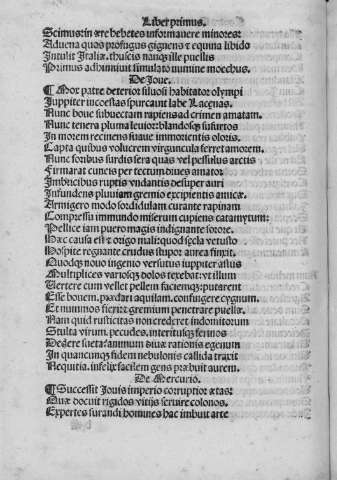 Liber primus.
Scimus: in ære hebetes informauere minores:
Aduena quos profugus gignens & equina libido
Intulit Italiæ. thuscis nanque ille puellis
Primus adhinniuit simulato numine moechus.
De Joue.
¶ Mox patre deterior siluosi habitator olympi
Juppiter incestas spurcauit labe Lacænas.
Nunc boue subuectam rapiens ad crimen amatam.
Nunc tenera pluma leuior: blandosque susurros
In morem recinens suaue immorientis oloris.
Capta quibus volucrem virguncula ferret amorem.
Nunc foribus surdis sera quas vel pessulus arctis
Firmarat cuneis per tectum diues amator
Imbricibus ruptis vndantis desuper auri
Infundens pluuiam gremio excipientis amicæ.
Armigero modo sordidulam curante rapinam
Compressu immundo miserum cupiens catamytum:
Pellice iam puero magis indignante sorore.
Hæc causa est & origo mali: quod secla vetusto
Hospite regnante crudus stupor aurea finxit.
Quodque nouo ingenio versutus iuppiter astus
Multiplices variosque dolos texebat: vt illum
Vertere cum vellet pellem faciemque: putarent
Esse bouem. prædari aquilam. confingere cygnum.
Et nummos fieri: & gremium penetrare puellæ.
Nam quid rusticitas non crederet indomitorum
Stulta virum. pecudes. interitusque ferinos
Dedere sueta: animum diuæ rationis egenum
In quancunque fidem nebulonis callida traxit
Nequitia. infelix facilem gens præbuit aurem.
De Mercurio.
¶ Successit Jouis imperio corruptior ætas:
Quæ docuit rigidos vitijs seruire colonos.
Expertes furandi homines hac imbuit arte